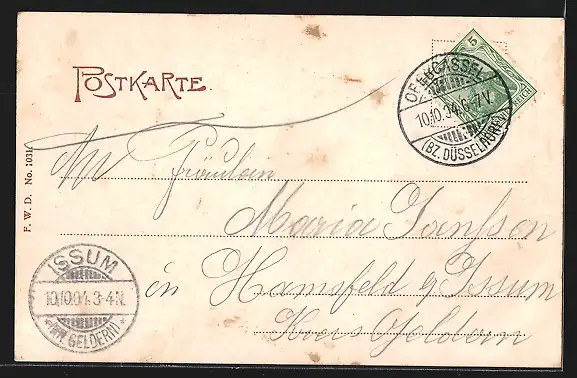 POSTKARTE.
5
OBERCASSEL
10.10.04. 6-7V.
(BZ. DÜSSELDORF)
F. W. D. No. 1031.
An Fräulein
Maria Janssen
in Hamsfeld b/ Issum
Kreis Geldern
ISSUM
10.10.04. 3-4N.
GELDERN)